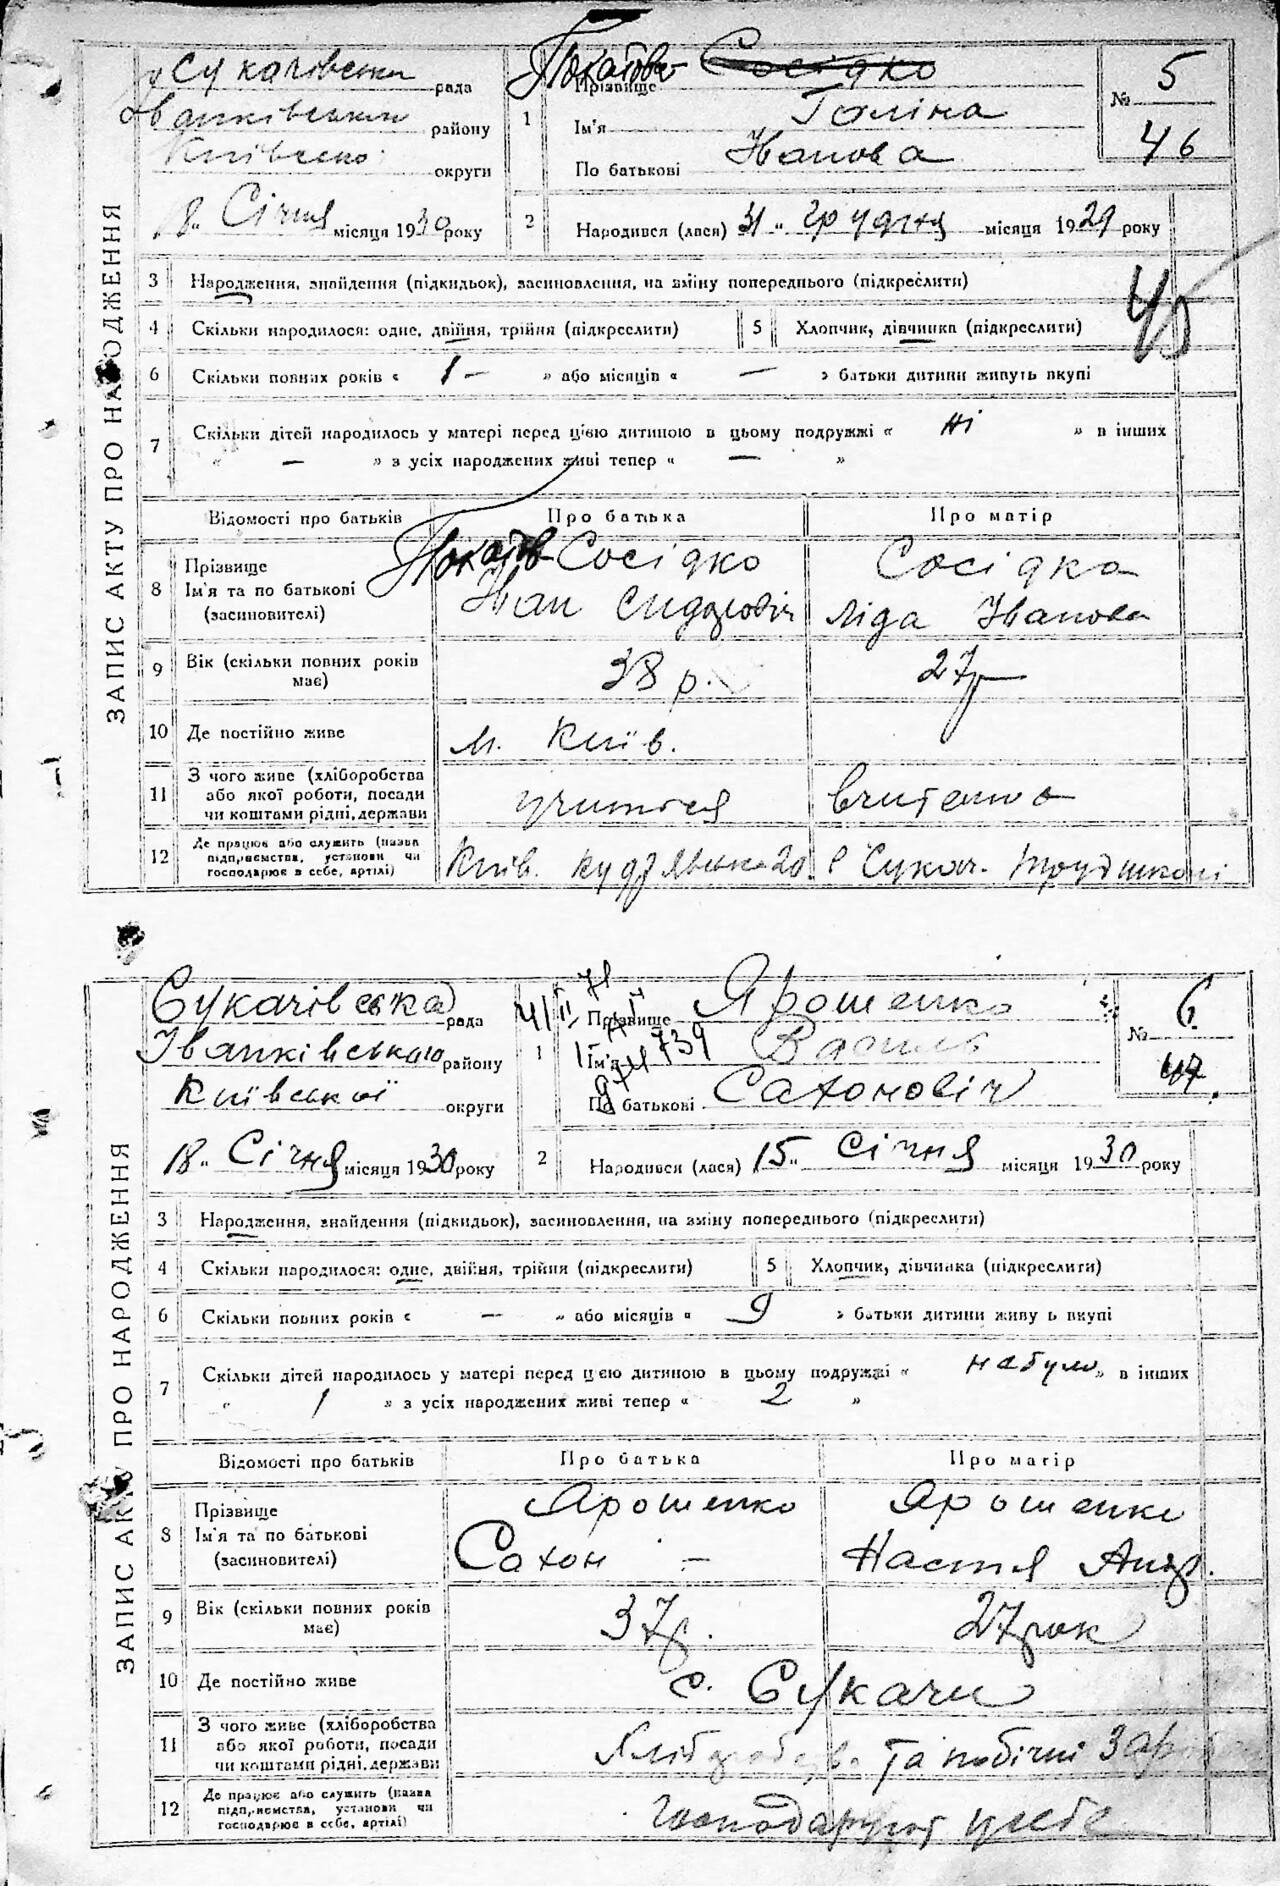 ЗАПИС АКТУ ПРО НАРОДЖЕННЯ
Сукачівська рада
Іванківськи району
Київсько округи
18 „ Січня місяця 1930 року
1 Прізвище Сосідко
Ім'я Галіна
По батькові Іванова
№ 5
46
2 Народився (лася) 31 „ грудня місяця 1929 року
3 Народження, знайдення (підкидьок), засиновлення, на зміну попереднього (підкреслити)
45
4 Скільки народилося: одне, двійня, трійня (підкреслити) 5 Хлопчик, дівчинка (підкреслити)
6 Скільки повних років « 1 — » або місяців « — » батьки дитини живуть вкупі
7 Скільки дітей народилось у матері перед цією дитиною в цьому подружжі « ні » в інших
„ — » з усіх народжених живі тепер « — »
Відомості про батьків Про батька Про матір
8 Прізвище Сосідко Сосідка
Ім'я та по батькові Іван Сидорович Ліда Іванова
(засиновителі)
9 Вік (скільки повних років має) 38 р. 27р
10 Де постійно живе м. Київ.
11 З чого живе (хліборобства або якої роботи, посади чи коштами рідні, держави учится
12 Де працює або служить (назва підприємства, установи чи господарює в себе, артілі) Київ. 20. в Сукач. Трудшколі
ЗАПИС АКТУ ПРО НАРОДЖЕННЯ
Сукачівська рада
Іванківського району
Київської округи
18 „ Січня місяця 1930 року
1 Прізвище Ярошенко
Ім'я Василь
По батькові Сахонович
№ 6
47.
2 Народився (лася) 15 „ Січня місяця 1930 року
3 Народження, знайдення (підкидьок), засиновлення, на зміну попереднього (підкреслити)
4 Скільки народилося: одне, двійня, трійня (підкреслити) 5 Хлопчик, дівчинка (підкреслити)
6 Скільки повних років « — „ або місяців « 9 » батьки дитини живу ь вкупі
7 Скільки дітей народилось у матері перед цією дитиною в цьому подружжі « небуло » в інших
„ 1 » з усіх народжених живі тепер « 2 »
Відомості про батьків Про батька Про матір
8 Прізвище Ярошенко Ярошенко
Ім'я та по батькові Сахон — Настя Андр.
(засиновителі)
9 Вік (скільки повних років має) 37р. 27рок
10 Де постійно живе с. Сукачи
11 З чого живе (хліборобства або якої роботи, посади чи коштами рідні, держави та побічні
12 Де працює або служить (назва підприємства, установи чи господарює в себе, артілі) господарують усебе